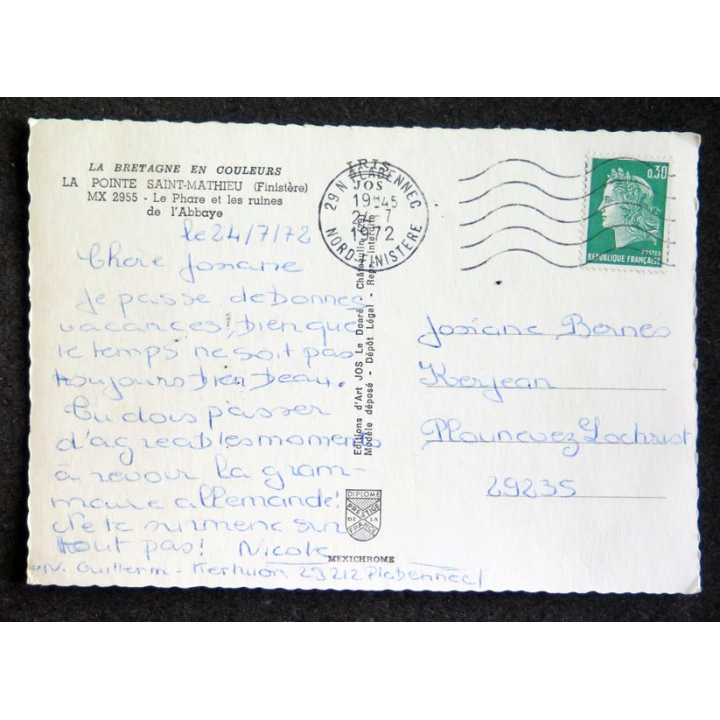 LA BRETAGNE EN COULEURS
LA POINTE SAINT-MATHIEU (Finistère)
MX 2955 - Le Phare et les ruines
de l'Abbaye
le 24/7/72
Chère Josiane
Je passe de bonnes
vacances, bien que
le temps ne soit pas
toujours bien beau.
Tu dois passer
d'agréables moments
à revoir la gram-
maire allemande!
Ne te surmène sur
tout pas! Nicole
N. Guillerm - Kerhuon 29212 Plabennec
IRIS
JOS
29 N PLABENNEC
19H45
24-7
1972
NORD-FINISTERE
Editions d'Art JOS Le Doaré, Châteaulin
Modèle déposé - Dépôt Légal - Repr. Interdite
DIPLOME
PRESTIGE
DE LA
FRANCE
MEXICHROME
0,30
POSTES
REPUBLIQUE FRANÇAISE
Josiane Bornes
Kerjean
Plounevez Lochrist
29235